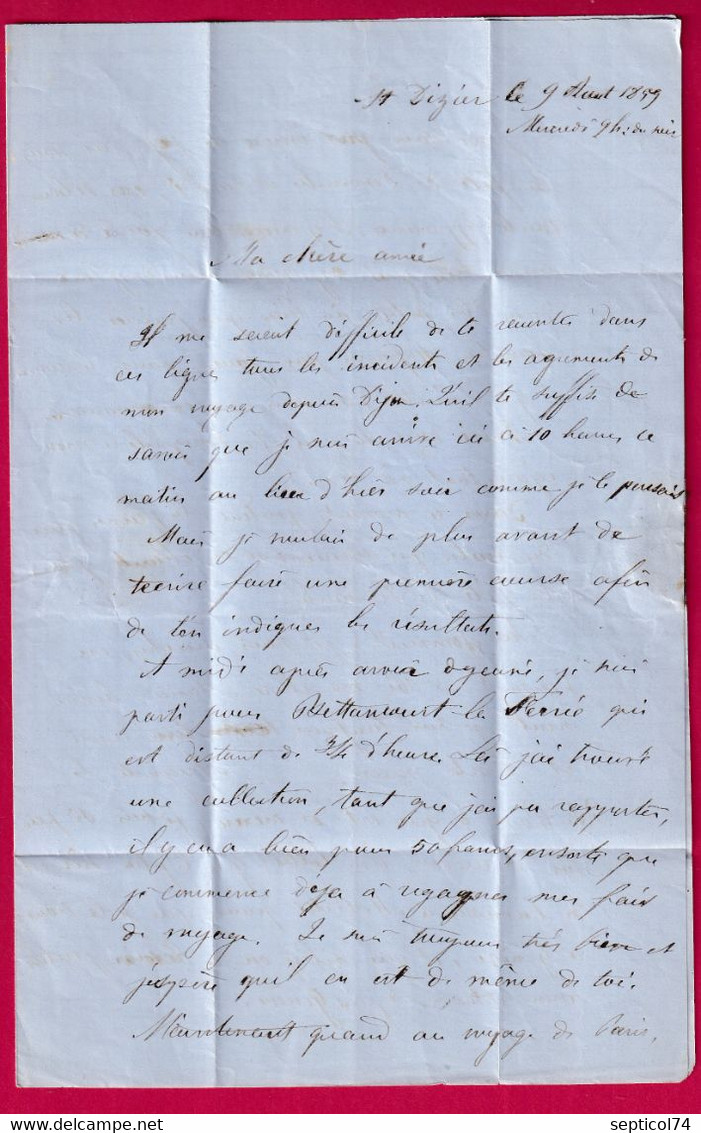 St Dizier le 9 Aout 1859
Mercredi 9h: du soir
Ma chère amie
Il me serait difficile de te raconter dans
ces lignes tous les incidents et les agrements de
mon voyage depuis Dijon. Qu'il te suffise de
savoir que je suis arrivé ici à 10 heures ce
matin au lieu d'hier soir comme je le pensais
Mais je voulais de plus avant de
t'ecrire faire une première course afin
de t'en indiquer les résultats.
A midi après avoir dejeuné, je suis
parti pour Bettancourt-la-Ferrée qui
est distant de 3/4 d'heure. Là j'ai trouvé
une collection, tant que j'ai pu rapporter,
il y en a bien pour 50 francs, ensorte que
je commence déja à regagner mes frais
de voyage. Je suis toujours très bien et
j'espère qu'il en est de même de toi.
Maintenant quand au voyage de Paris,
septicol74